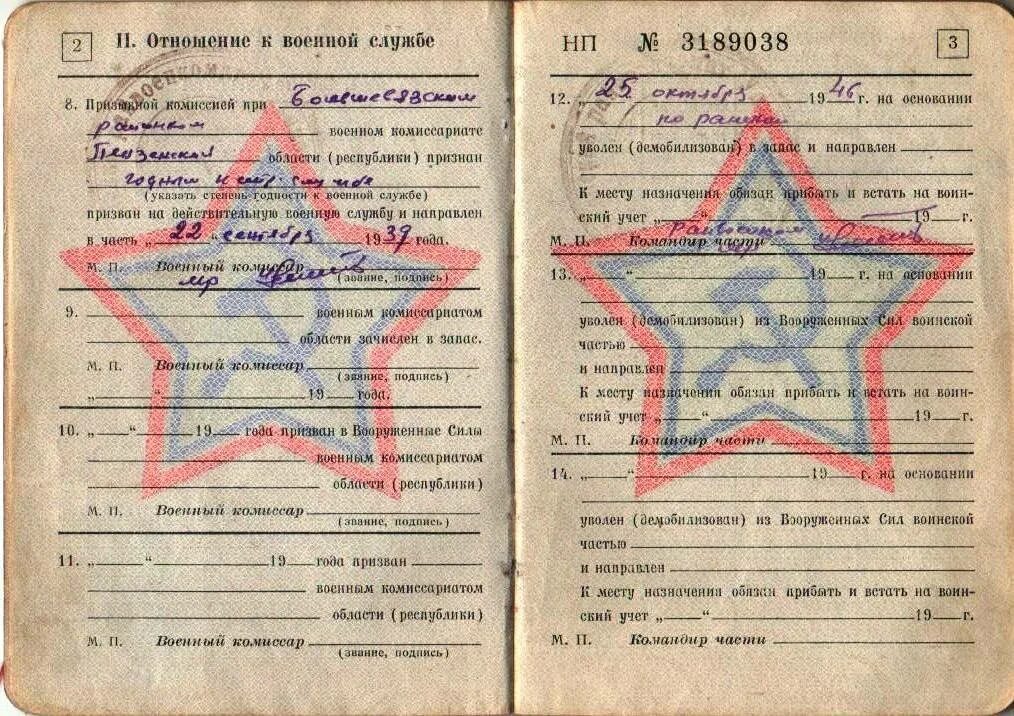 2
II. Отношение к военной службе
8. Призывной комиссией при
районном военном комиссариате
Пензенской области (республики) признан
годным к службе
(указать степень годности к военной службе)
призван на действительную военную службу и направлен
в часть „22“ сентября 1939 года.
М. П. Военный комиссар
(звание, подпись)
9. военным комиссариатом
области зачислен в запас.
М. П. Военный комиссар
(звание, подпись)
„ “ 19 года.
10. „ “ 19 года призван в Вооруженные Силы
военным комиссариатом
области (республики)
М. П. Военный комиссар
(звание, подпись)
11. „ “ 19 года призван
военным комиссариатом
области (республики)
М. П. Военный комиссар
(звание, подпись)
НП № 3189038
3
12. „25 октября 1946 г. на основании
по
уволен (демобилизован) в запас и направлен
К месту назначения обязан прибыть и встать на воин-
ский учет „ “ 19 г.
М. П. Командир части
13. „ “ 19 г. на основании
уволен (демобилизован) из Вооруженных Сил воинской
частью
и направлен
К месту назначения обязан прибыть и встать на воин-
ский учет „ “ 19 г.
М. П. Командир части
14. „ “ 19 г. на основании
уволен (демобилизован) из Вооруженных Сил воинской
частью
и направлен
К месту назначения обязан прибыть и встать на воин-
ский учет „ “ 19 г.
М. П. Командир части